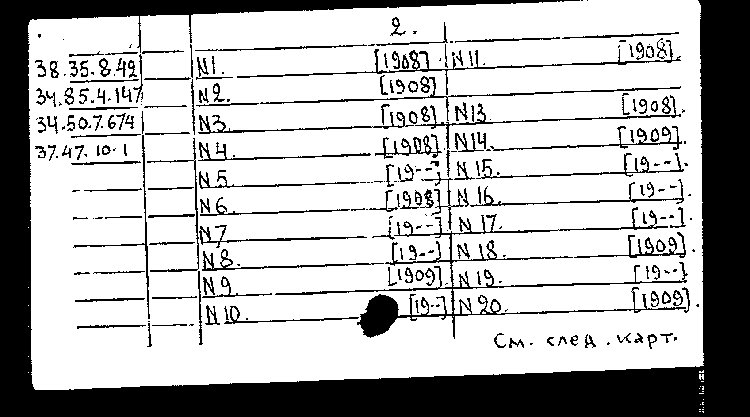 2.
38.35.8.49 N1. [1908] N11. [1908].
34.85.4.147 N2. [1908]
34.50.7.674 N3. [1908] N13. [1908].
37.47.10.1 N4. [1908] N14. [1909].
N5. [19--] N15. [19--].
N6. [1908] N16. [19--].
N7. [19--] N17. [19--].
N8. [19--] N18. [1909].
N9. [1909] N19. [19--].
N10. [19--] N20. [1909].
См. след. карт.